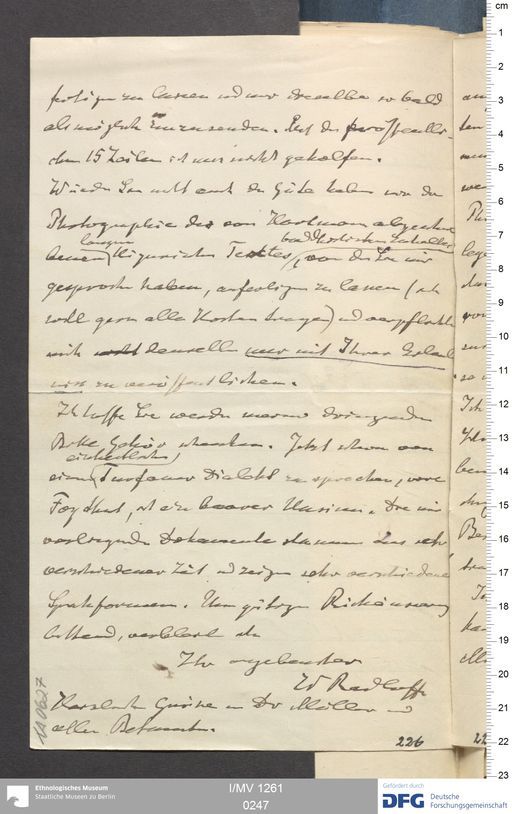 fertigen zu lassen und mir dieselbe so bald
als möglich Einzusenden. Mit den
15 Zeilen ist mir nicht geholfen.
Würden Sie nicht auch die Güte haben von der
Photographie des von Hartmann
langen buddhistischen Inhaltes
uigurischen Textes, von der Sie mir
gesprochen haben, anfertigen zu lassen (ich
will gern alle Kosten tragen) und verpflichte
mich denselben nur mit Ihrer Erlaub
niss zu veröffentlichen.
Ich hoffe Sie werden meiner dringenden
Bitte Gehör schenken. Jetzt schon von
einheitlichen
einem Turfaner Dialekt zu sprechen, wie
Foy thut, ist ein baarer Unsinn. Die mir
vorliegenden Dokumente stammen aus sehr
verschiedener Zeit und zeigen sehr verschiedene
Sprachformen. Um gütige
bittend, verbleibe ich
Ihr ergebenster
W Radloff
Herzliche Grüsse an Dr Müller und
allen Bekannten.
226
cm
1
2
3
4
5
6
7
8
9
10
11
12
13
14
15
16
17
18
19
20
21
22
23
Ethnologisches Museum
Staatliche Museen zu Berlin
I/MV 1261
0247
Gefördert durch
DFG Deutsche
Forschungsgemeinschaft